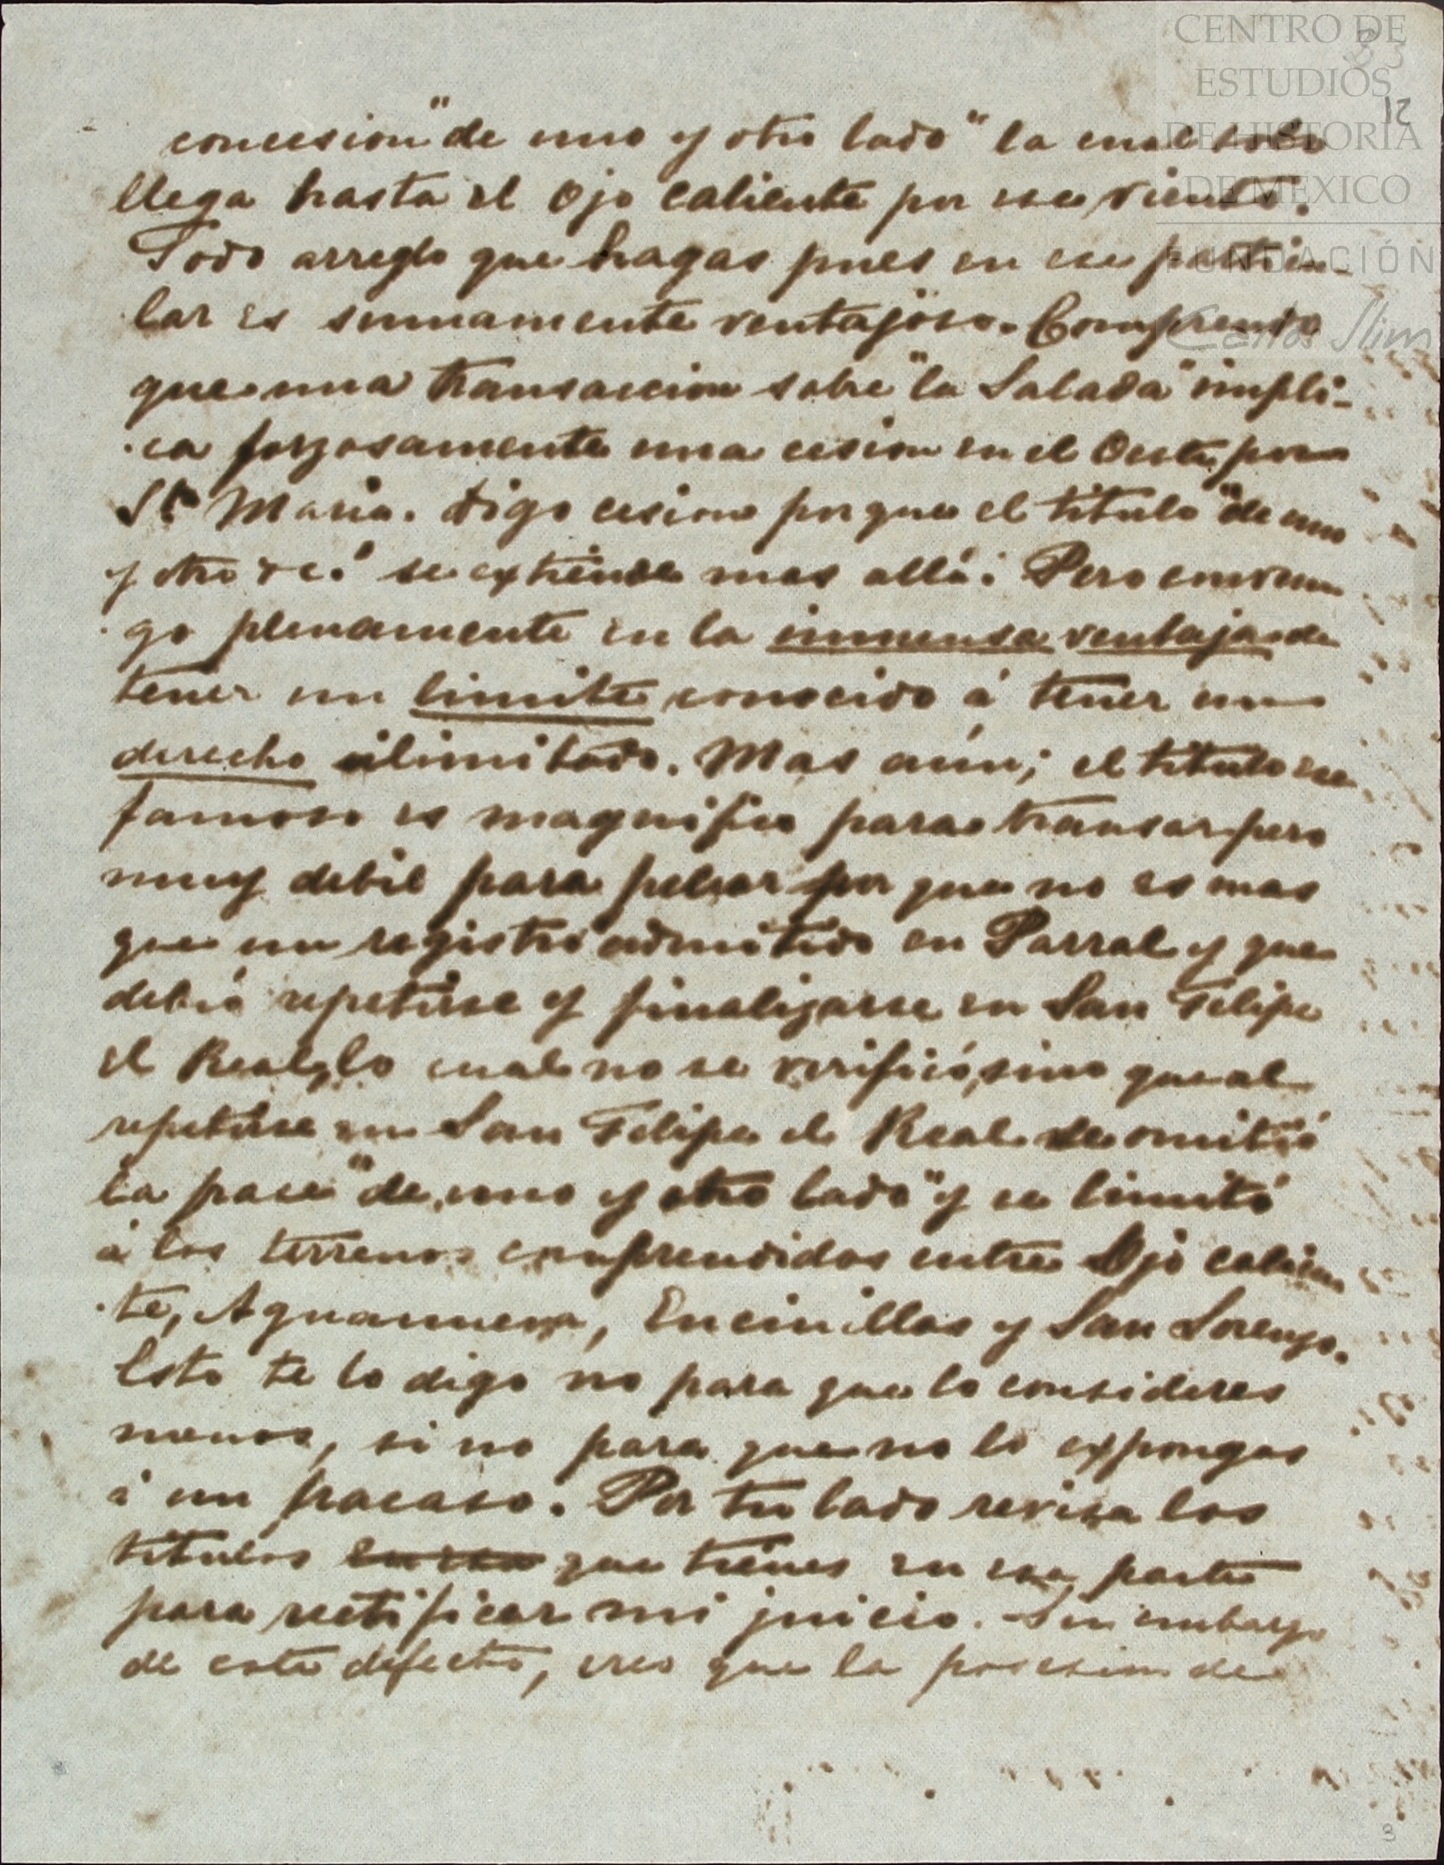 CENTRO DE
ESTUDIOS
DE HISTORIA
DE MÉXICO
FUNDACIÓN
Carlos Slim
12
concesion "de uno y otro lado" la cual solo
llega hasta el Ojo caliente por ese viento.
Todo arreglo que hagas pues en ese particu-
lar es sumamente ventajoso. Comprendo
que una transaccion sobre "la Salada" impli-
ca forzosamente una cesion en el Oeste por
Sta Maria. Digo cesion porque el titulo "de uno
y otro &c." se extiende mas allá. Pero conven
go plenamente en la inmensa ventaja de
tener un limite conocido á tener un
derecho ilimitado. Mas aún; el titulo ese
famoso es magnifico para transar pero
muy debil para pelear por que no es mas
que un registro admitido en Parral y que
debió repetirse y finalizarse en San Felipe
el Real, lo cual no se verificó, sino que al
repetirse en San Felipe el Real se omitió
la frase "de uno y otro lado" y se limitó
á los terrenos comprendidos entre Ojo calien
te, Aguanueva, Encinillas y San Lorenzo.
Esto te lo digo no para que lo consideres
menos, si no para que no lo expongas
á un fracaso. Por tu lado revisa los
titulos que tienes en esa parte
para rectificar mi juicio. Sin embargo
de este defecto, creo que la posesion de
3